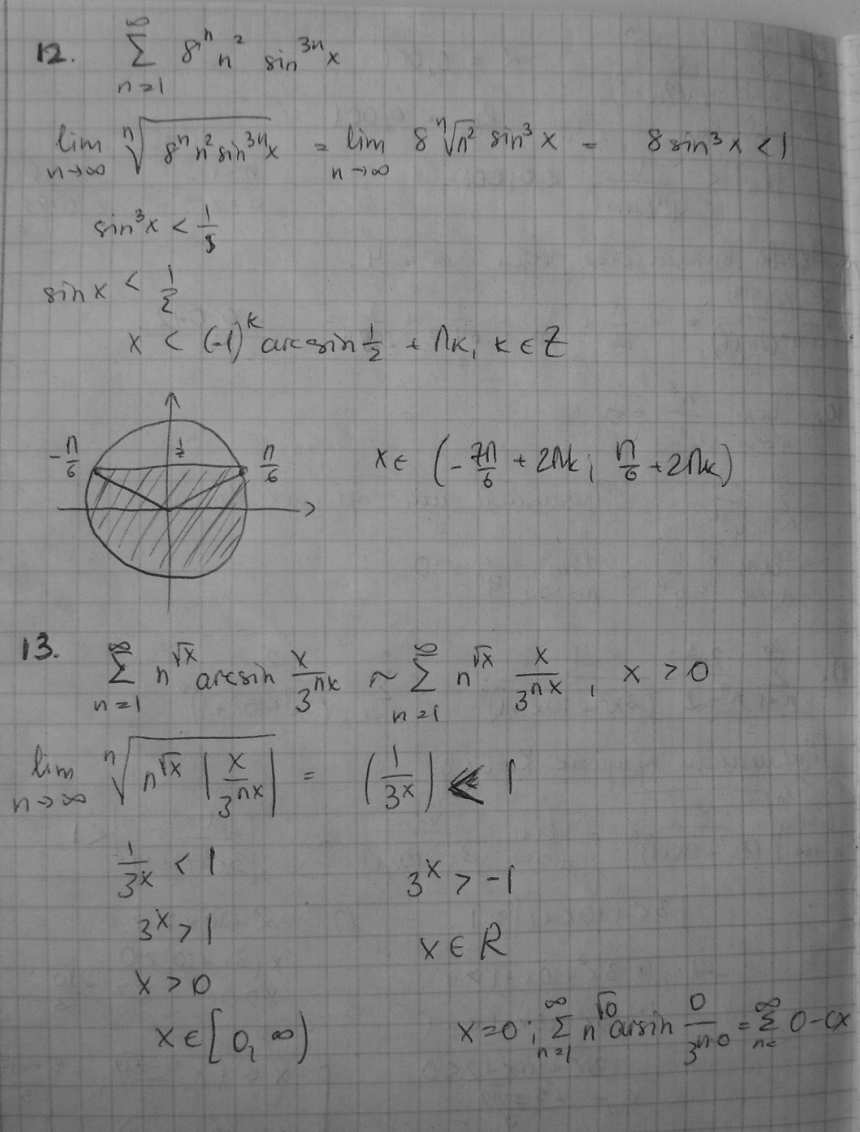 12. ∞ ∑ n=1 8ⁿ n² sin³ⁿx
lim n→∞ ⁿ√(8ⁿ n² sin³ⁿx) = lim n→∞ 8 ⁿ√n² sin³x = 8 sin³x < 1
sin³x < 1/8
sinx < 1/2
x < (-1)ᵏ arcsin 1/2 + πk, k ∈ Z
-π/6 1/2 π/6 x ∈ (-7π/6 + 2πk; π/6 + 2πk)
13. ∞ ∑ n=1 n^√x arcsin x/3^nx ~ ∞ ∑ n=1 n^√x x/3^nx, x > 0
lim n→∞ ⁿ√(n^√x |x/3^nx|) = (1/3^x) < 1
1/3^x < 1 3^x > -1
3^x > 1 x ∈ R
x > 0
x ∈ [0, ∞) x=0; ∞ ∑ n=1 n^√0 arsin 0/3^n·0 = ∞ ∑ n= 0 - сх